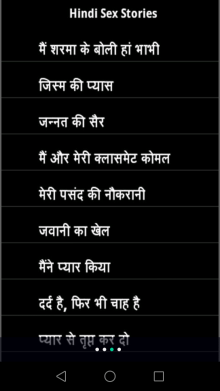 Hindi Sex Stories
मैं शरमा के बोली हां भाभी
जिस्म की प्यास
जन्नत की सैर
मैं और मेरी क्लासमेट कोमल
मेरी पसंद की नौकरानी
जवानी का खेल
मैंने प्यार किया
दर्द है, फिर भी चाह है
प्यार से तृप्त कर दो